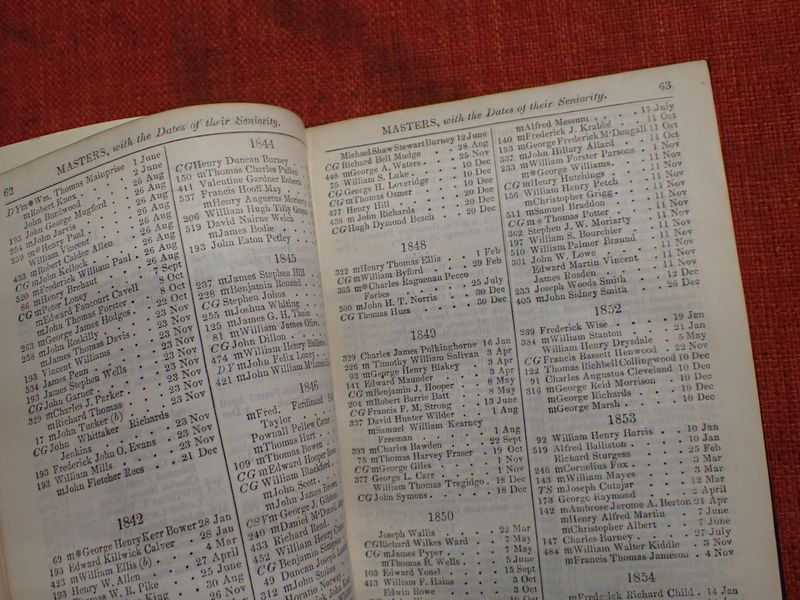 62
MASTERS, with the Dates of their Seniority.
DYm*Wm. Thomas Mainprise 1 June
mRobert Knox . . 2 June
John Burdwood . . 26 Aug
193 John George Mugford . 26 Aug
254 mJohn Jarvis . . 26 Aug
239 m*Henry Paul . . 26 Aug
William Vincent . . 26 Aug
433 mRobert Calder Allen . 26 Aug
CG mJohn Kellock . . 26 Aug
520 mFrederick William Paul . 26 Aug
86 mHenry Brehaut . . 7 Sept
CG mPeter Loney . . 8 Oct
mEdward Fancourt Cavell 8 Oct
John Thomas Forster . 22 Oct
253 mGeorge James Hodges . 23 Nov
258 mJohn Roskilly . . 23 Nov
mJames Thomas Davis . 23 Nov
193 Vincent Williams . . 23 Nov
534 James Penn . . 23 Nov
193 James Stephen Wells . 23 Nov
CG John Garner . . 23 Nov
329 mCharles J. Parker . 23 Nov
mRichard Thomas . . 23 Nov
17 mJohn Tucker (b) . . 23 Nov
CG John Whittaker Richards
Jenkins . . 23 Nov
193 Frederick John O. Evans . 23 Nov
193 William Mills . . 23 Nov
mJohn Fletcher Rees . . 21 Dec
1842
69 m*George Henry Kerr Bower 28 Jan
193 Edward Killwick Calver . 28 Jan
423 mWilliam Ellis (b) . . 4 Mar
193 Henry W. Allen . . 27 April
Thomas W. R. Pike . . 25 June
King . . 30 Aug
26 Nov
1844
CG Henry Duncan Burney
150 mThomas Charles Pullen
441 Valentine Gardner Roberts
537 Francis Hooff May
mHenry Augustus
206 William Hugh Tilly
519 David Nairne Welch
mJames Bodie
193 John Eaton Petley
1845
237 mJames Stephen Hill
228 mBenjamin Renaud
CG Stephen Johns
255 mJoshua Whiting
125 mJames G. H. Thain
81 mWilliam James Oliver
CG John Dillon
474 mWilliam Henry
DY mJohn Felix Loney
421 mJohn William
1846
mFred. Ferdinand
Taylor
Pownall Pelles
mThomas Hart
109 mThomas Bower
CG mEdward Hooper
CG William Blackford
mJohn Scott
mJohn James Brown
CS Vm George J. Gibbons
240 mDaniel
433 Richard Reed
452 William Henry
CG Benjamin Simpson
49 Duncan Joseph
312 mJohn Stokes
Horatio
63
MASTERS, with the Dates of their Seniority.
Michael Shaw Stewart Burney 12 June
CG Richard Bell Mudge . 28 Aug
448 mGeorge A. Waters . . 25 Nov
75 William S. Luke . . 10 Dec
CG George H. Loveridge . 10 Dec
CG mThomas Osmer . . 10 Dec
477 Henry Hill . . 20 Dec
438 m John Richards . . 20 Dec
CG Hugh Dymond Beach . 20 Dec
1848
322 mHenry Thomas Ellis . 1 Feb
CG mWilliam Byford . . 29 Feb
385 m*Charles Raguenau Pecco
Forbes . . 25 July
500 mJohn H. T. Norris . . 30 Dec
CG Thomas Huss . . 30 Dec
1849
329 Charles James Polkinghorne 16 Jan
226 m Timothy William Salivan 3 Apr
93 mGeorge Henry Blakey . 3 Apr
141 Edward Maunder . . 3 Apr
CG mBenjamin J. Hooper . 8 May
204 mRobert Barrie Batt . 8 May
CG Francis F. M. Strong . 13 June
337 David Hunter Wilder . 1 Aug
mSamuel William Kearney
Freeman . . 1 Aug
393 mCharles Bawden . . 22 Sept
75 mThomas Harvey Fraser . 19 Oct
CG mGeorge Giles . . 1 Nov
377 George L. Carr . . 1 Nov
William Thomas Tregidgo . 18 Dec
CG John Symons . . 18 Dec
1850
Joseph Wallis . . 22 Mar
CG Richard Wilkes Ward . 7 May
CG mJames Pyper . . 7 May
mThomas B. Wells . . 5 June
103 Edward Youel . . 15 Sept
413 William F. Hains . . 3 Oct
Edwin Rowe . . 3 Oct
mAlfred Messum . . 17 July
140 mFrederick J. Krabbé . 11 Oct
193 mGeorge Frederick McDougall 11 Oct
337 mJohn Hillary Allard . 11 Oct
233 mWilliam Forster Parsons 11 Nov
m*George Williams . 11 Nov
CG mHenry Hutchings . 11 Nov
156 William Henry Petch . 11 Nov
mChristopher Grigg . . 11 Nov
511 mSamuel Braddon . . 11 Nov
CG m* Thomas Potter . 11 Nov
362 Stephen J. W. Moriarty . 11 Nov
197 William S. Bourchier . 11 Nov
510 William Palmer Braund . 11 Nov
301 John W. Lowe . . 11 Nov
Edward Martin Vincent . 11 Nov
James Rusden . . 11 Nov
233 Joseph Woods Smith . 12 Dec
405 mJohn Sidney Smith . 26 Dec
1852
239 Frederick Wise . . 19 Jan
384 mWilliam Stanton . . 21 Jan
William Henry Drysdale . 5 May
CG Francis Bassett Henwood . 22 Nov
122 Thomas Richbell Collingwood 10 Dec
91 Charles Augustus Cleveland 10 Dec
316 mGeorge Reid Morrison . 10 Dec
mGeorge Richards . 10 Dec
mGeorge Marsh . . 10 Dec
1853
92 William Henry Harris . 10 Jan
519 Alfred Balliston . . 10 Jan
Richard Sturgess . . 25 Feb
246 mCornelius Fox . . 3 Mar
143 mWilliam Mayes . . 3 Mar
TS mJoseph Cntajar . . 12 Mar
173 George Raymond . . 2 April
142 mAmbrose Jerome A. Berton 21 Apr
mHenry Alfred Martin . 7 June
mChristopher Albert . 7 June
147 Charles Burney . . 27 July
484 mWilliam Walter Kiddle . 3 Nov
mFrancis Thomas Jameson . 4 Nov
1854
mFrederick Richard Child . 14 Jan